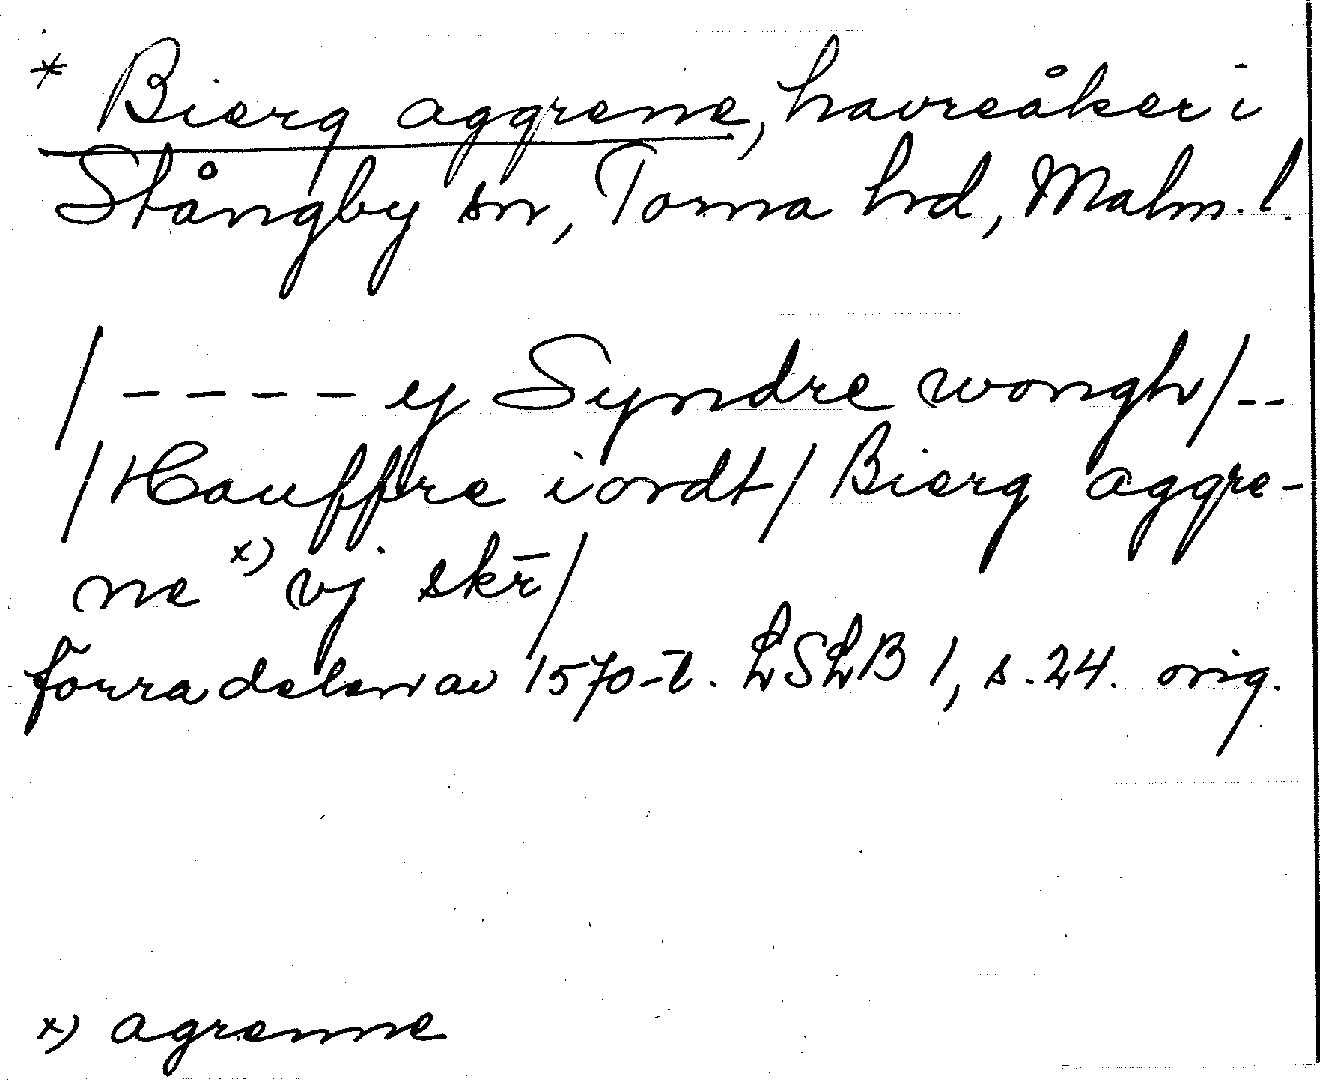 * Bierg aggrene, havreåker i
Stångby sn, Torna hrd, Malm. l.
/ - - - - ey Syndre wongh/--
/Hauffre iordt/ Bierg aggre-
ne x) vj skr̄/
förra delen av 1570-t. LSLB 1, s. 24. orig.
x) agrenne